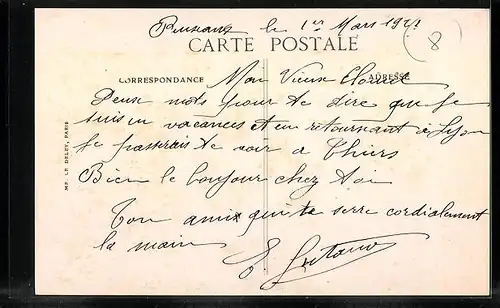 le 1er Mars 1921
8
CARTE POSTALE
CORRESPONDANCE
ADRESSE
Mon Vieux
Deux mots pour te dire que je
suis en vacances et en retournant à Lyon
je passerais te voir à Thiers
Bien le bonjour chez toi
Ton ami qui te serre cordialement
la main
E
MP. LE DELEY, PARIS